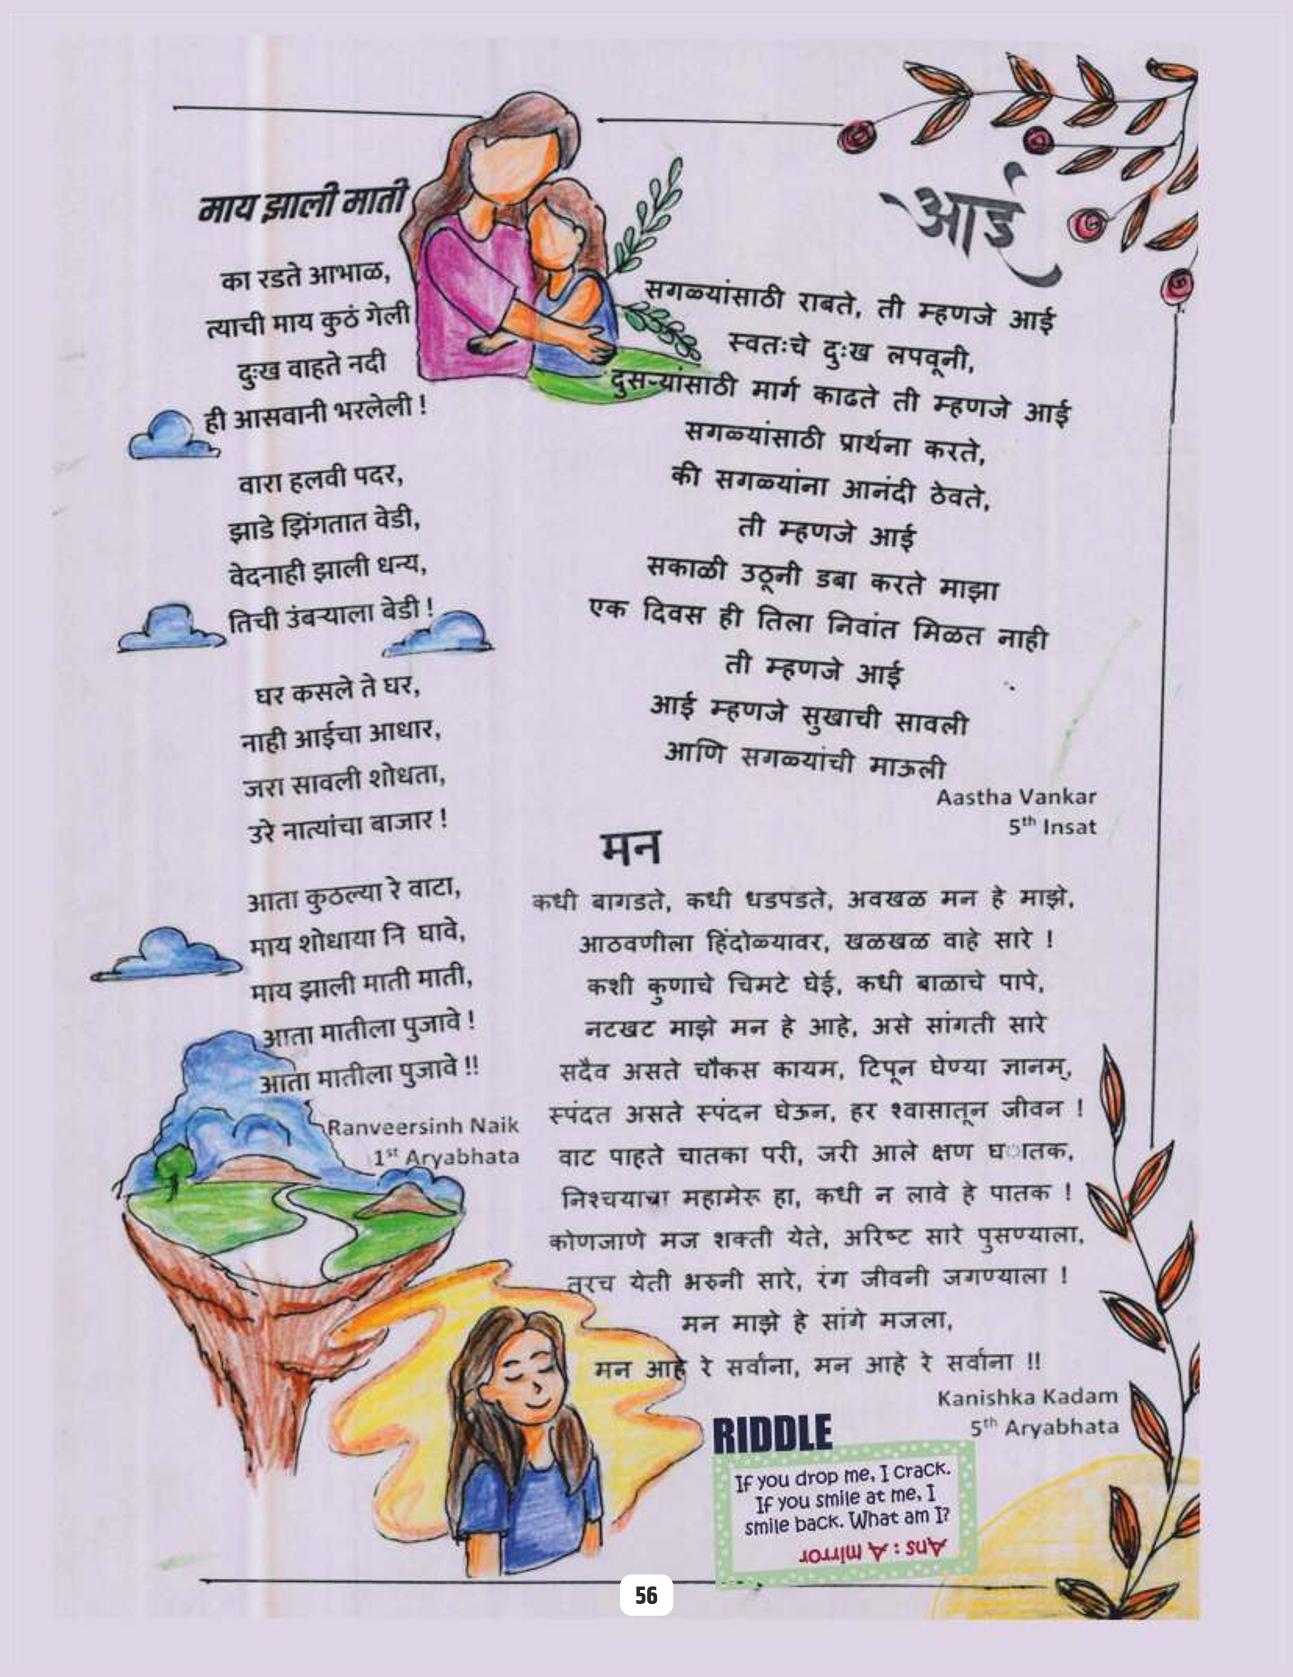 माय झाली माती
का रडते आभाळ,
त्याची माय कुठं गेली
दुःख वाहते नदी
ही आसवानी भरलेली !
वारा हलवी पदर,
झाडे झिंगतात वेडी,
वेदनाही झाली धन्य,
तिची उंबऱ्याला बेडी !
घर कसले ते घर,
नाही आईचा आधार,
जरा सावली शोधता,
उरे नात्यांचा बाजार !
आता कुठल्या रे वाटा,
माय शोधाया नि घावे,
माय झाली माती माती,
आता मातीला पुजावे !
आता मातीला पुजावे !!
Ranveersinh Naik
1st Aryabhata
आई
सगळ्यांसाठी राबते, ती म्हणजे आई
स्वतःचे दुःख लपवूनी,
दुसऱ्यांसाठी मार्ग काढते ती म्हणजे आई
सगळ्यांसाठी प्रार्थना करते,
की सगळ्यांना आनंदी ठेवते,
ती म्हणजे आई
सकाळी उठूनी डबा करते माझा
एक दिवस ही तिला निवांत मिळत नाही
ती म्हणजे आई
आई म्हणजे सुखाची सावली
आणि सगळ्यांची माऊली
Aastha Vankar
5th Insat
मन
कधी बागडते, कधी धडपडते, अवखळ मन हे माझे,
आठवणीला हिंदोळ्यावर, खळखळ वाहे सारे !
कशी कुणाचे चिमटे घेई, कधी बाळाचे पापे,
नटखट माझे मन हे आहे, असे सांगती सारे
सदैव असते चौकस कायम, टिपून घेण्या ज्ञानम्,
स्पंदत असते स्पंदन घेऊन, हर श्वासातून जीवन !
वाट पाहते चातका परी, जरी आले क्षण घातक,
निश्चयाचा महामेरू हा, कधी न लावे हे पातक !
कोणजाणे मज शक्ती येते, अरिष्ट सारे पुसण्याला,
तरच येती भरुनी सारे, रंग जीवनी जगण्याला !
मन माझे हे सांगे मजला,
मन आहे रे सर्वांना, मन आहे रे सर्वांना !!
Kanishka Kadam
5th Aryabhata
RIDDLE
If you drop me, I crack.
If you smile at me, I
smile back. What am I?
Ans : A mirror
56